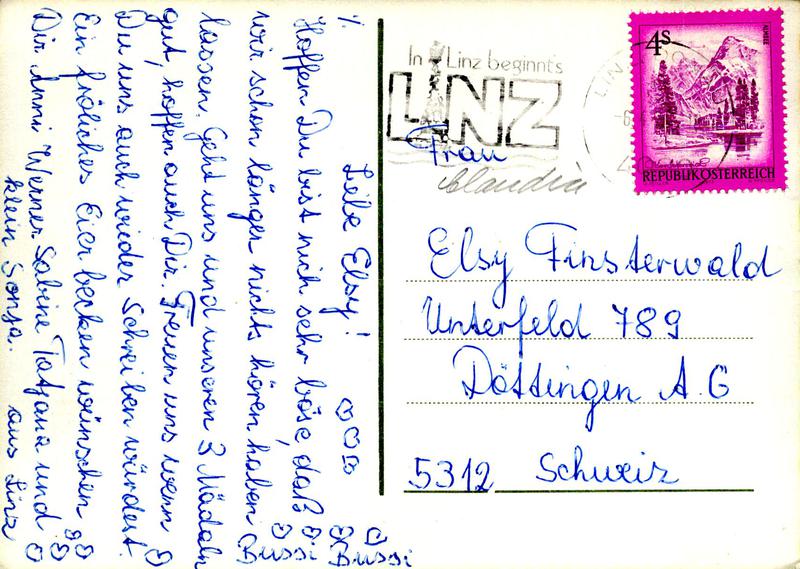 %
Liebe Elsy!
Hoffen Du bist nich sehr böse, daß
wir schon länger nichts hören haben
lassen. Geht uns und unseren 3 Mädaln
gut, hoffen auch Dir. Freuen uns wenn
Du uns auch wieder Schreiben würdest.
Ein fröliches Eier becken wünschen
Dir Anni Werner Sabine Tatjana und
klein Sonja. aus Linz
Bussi
Bussi
In Linz beginnt's
LINZ
LINZ
4S
ALMSEE
REPUBLIK ÖSTERREICH
Frau
Claudia
Elsy Finsterwald
Unterfeld 789
Döttingen A.G
5312 Schweiz